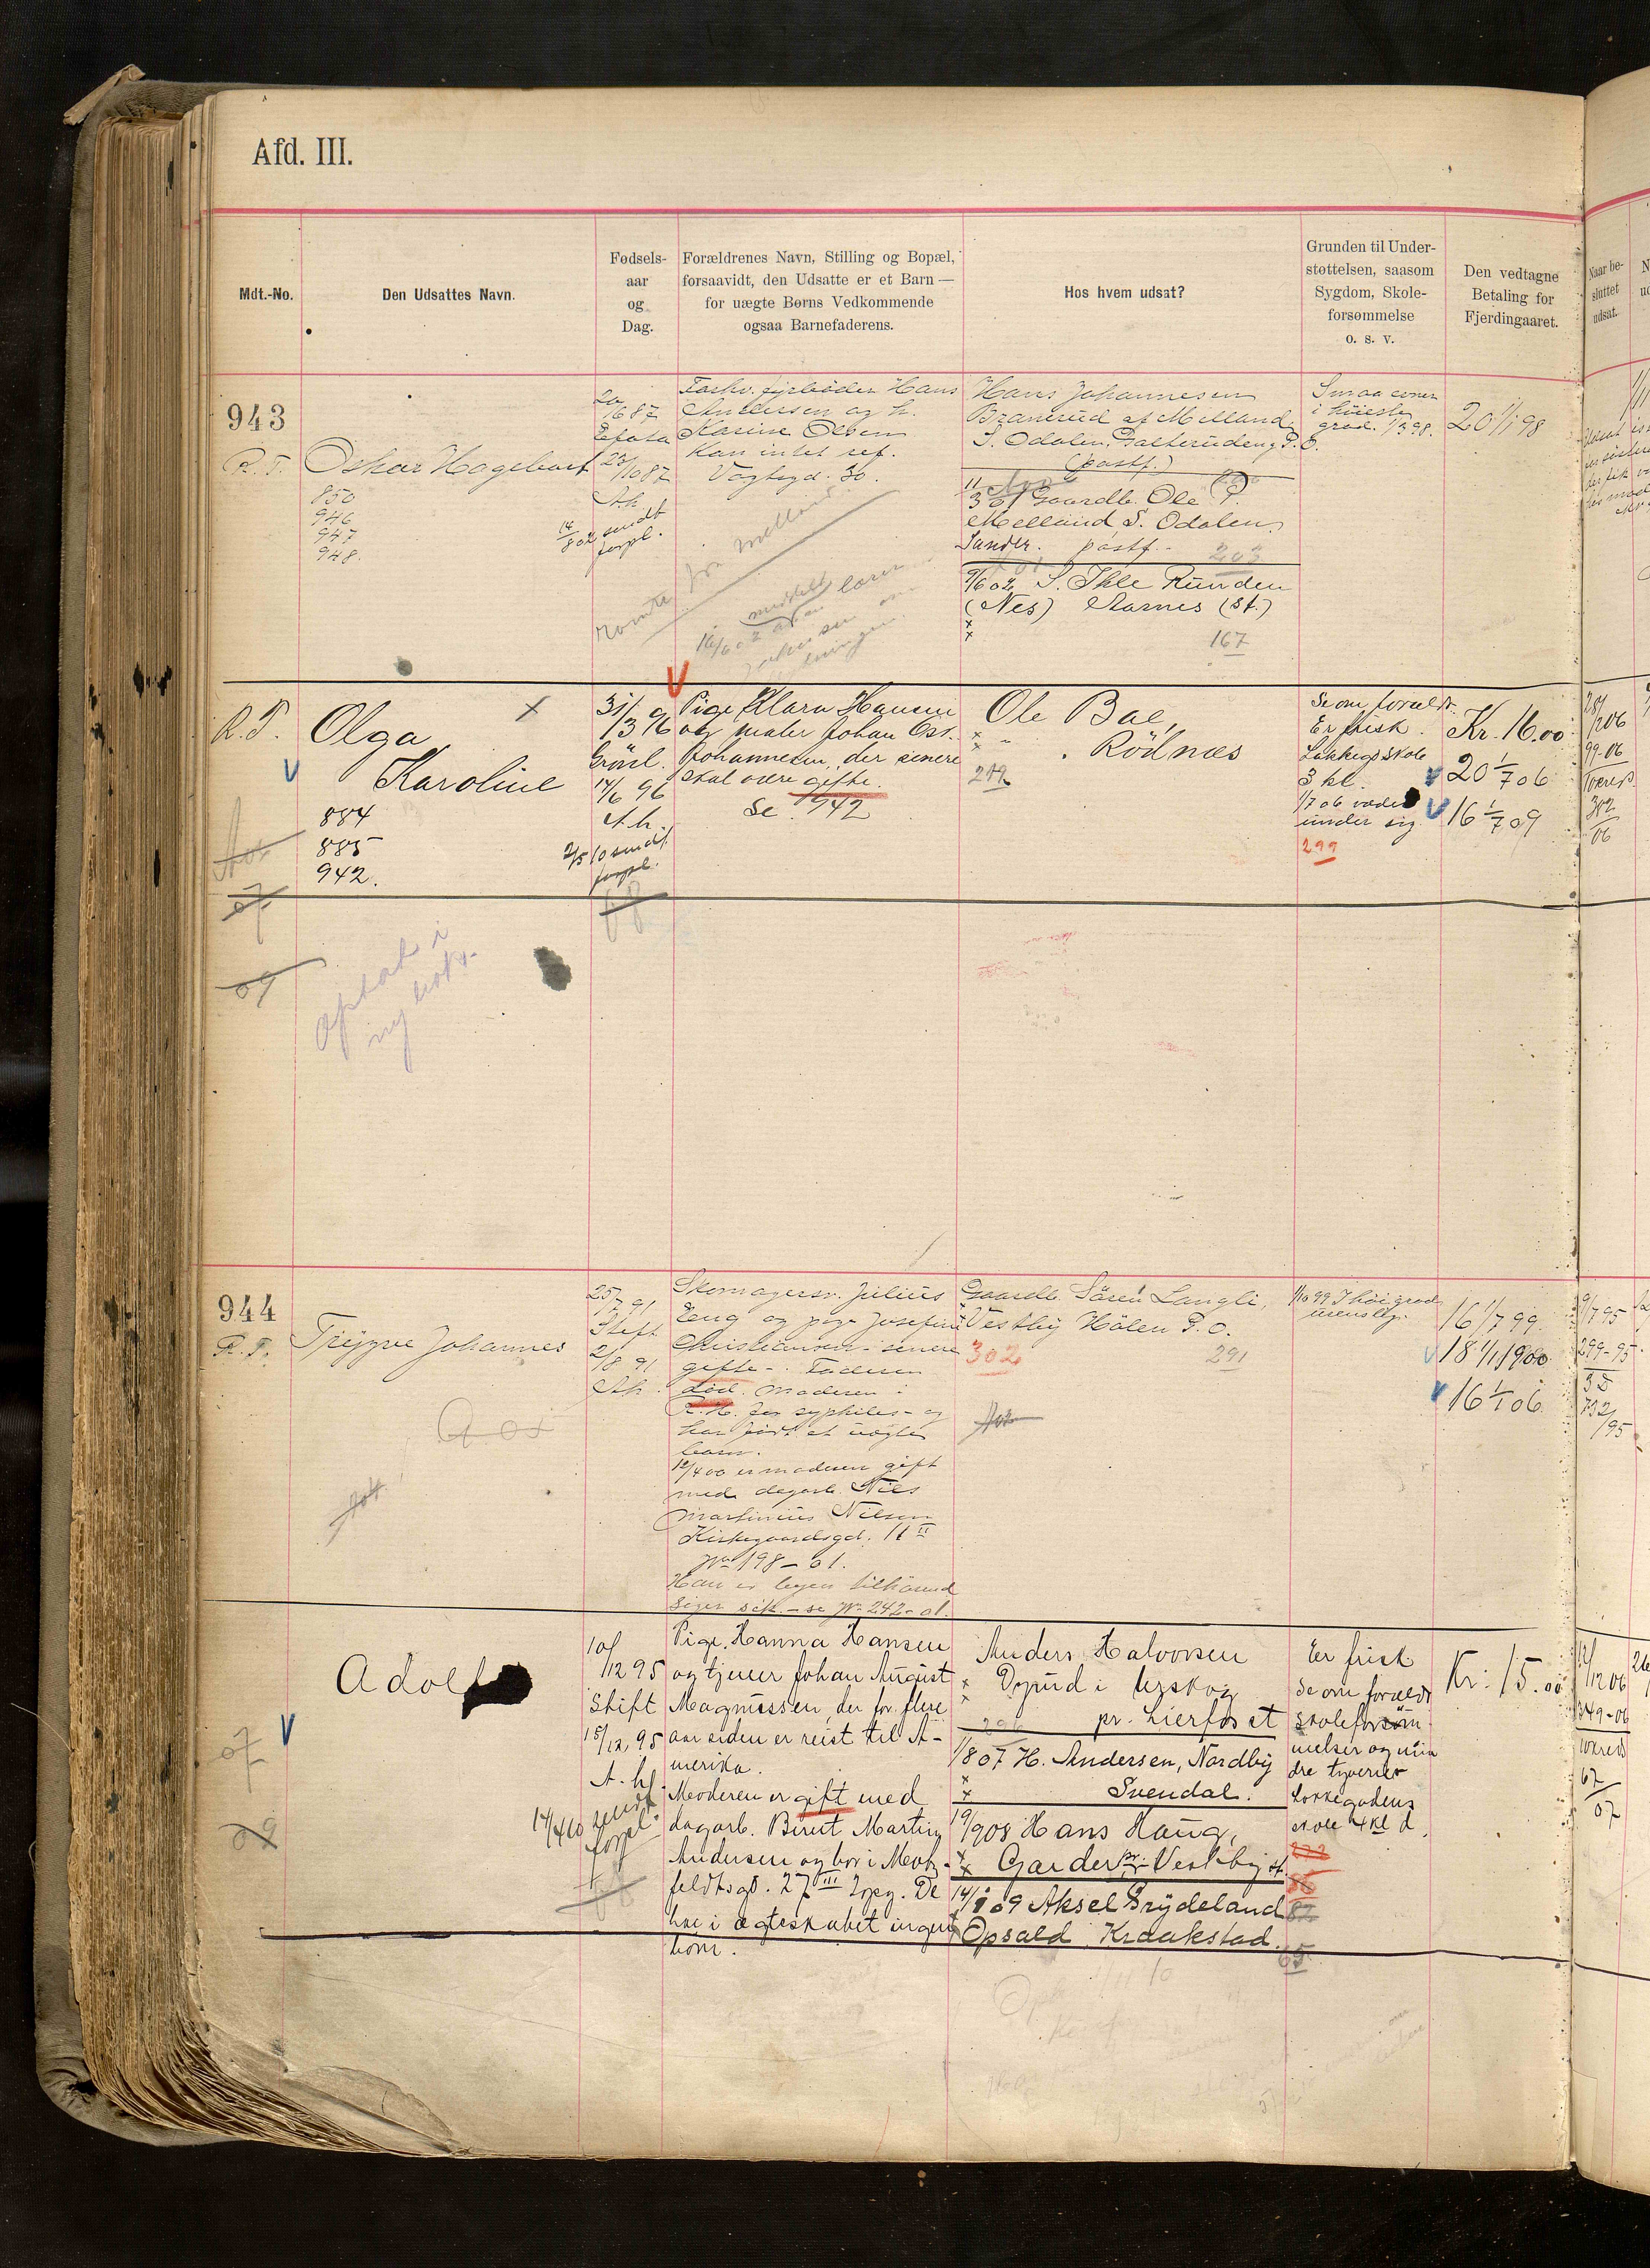 Afd. III.
Mdt.-No.
Den Udsattes Navn.
Fødsels-
aar
og
Dag.
Forældrenes Navn, Stilling og Bopæl,
forsaavidt, den Udsatte er et Barn —
for uægte Børns Vedkommende
ogsaa Barnefaderens.
Hos hvem udsat?
Grunden til Under-
støttelsen, saasom
Sygdom, Skole-
forsømmelse
o. s. v.
Den vedtagne
Betaling for
Fjerdingaaret.
Naar be-
sluttet
udsat.
943
R. T.
Oskar Hagebart
850
946
947
948.
20/6 87
23/10 87
A.h.
14/8 02 sendt
forpl.
Forhv. fyrbøder Hans
Andersen og h.
Karine Olsen
Kan intet ref.
Vogtsgd. 30.
Hans Johannesen
Branerud af Melland
S. Odalen, P.O.
(postf.)
11/3 01 Gaardb. Ole P.
Melland S. Odalen
Sander. postf.
203
9/6 02 S. Ihle Runden
(Nes) Aarnes (st.)
167
i høieste
grad. 1/3 98.
20 1/1 98
R. T.
Olga
Karoline
884
885
942.
31/3 96
Grönl.
14/6 96
A.h.
2/5 10 sendt
forpl.
Pige Klara Hansen
og maler Johan Osc.
Johannesen, der senere
skal være gifte.
Se 942
Ole Bae,
Rödnæs
219
Se om foræld.
Er frisk.
Lakkegs skole
3 kl.
1/7 06 væder
under sig
299
Kr. 16.00
20 1/7 06
16 1/7 09
28/1206
99-06
302
06
07
09
ophat i
ny
944
R. T.
Trygve Johannes
25/7 91
Stift
2/8 91
A.h.
Skomagersv. Julius
Eng og pige Josefine
Christiansen - senere
gifte -. Faderen
död. Moderen i
R.H. for syphilis - og
har född et uægte
barn.
12/4 00 er moderen gift
med dagarb. Nils
Martinius Nilsen
Kirkegaardsgd. 11 II
Jr 198 - 01.
Han er legen tilhaand
siger sik. - se Jr. 242-01.
Gaardb. Sören Langli,
Vestby Hölen P.O.
302
291
1/10 99 I høi grad
urenslig.
16 1/7 99
18 1/1 1900
16 1/1 06
9/7 95
299-95
732/95
Adolf
10/12 95
Stift
15/12, 95
A.h.
14/4 10 sendt
forpl.
Pige Hanna Hansen
og tjener Johan August
Magnussen, der for flere
aar siden er reist til A-
merika.
Moderen er gift med
dagarb. Birut Martin
Andersen og bor i Motz-
feldtsgd. 27 III Opg. De
har i ægteskabet ingen
börn.
Anders Halvorsen
Dyrud i Urskog
pr. Lierfos st
1/8 07 H. Andersen, Nordby
Svendal.
19/9 08 Hans Haug,
Garder pr. Vestby st.
14/1 09 Aksel Brydeland
Opsald Kraakstad.
Er frisk
Se om foræld
skoleforsöm-
melser og min
dre tyverier
Lakkegadens
skole 4 kl d.
65
Kr. 15.00
12/12 06
349-06
67
07
07
09